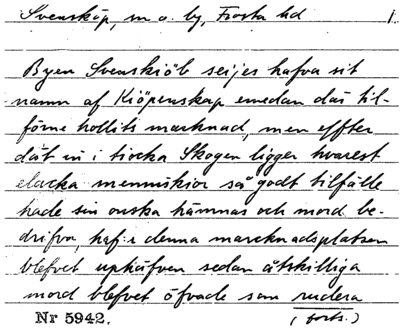 Svensköp, sn o. by, Frosta hd 1.
Byen Svenskiöb seijes hafva sit
namn af Kiöpenskap emedan där til-
förne hollits marknad, men effter
dät nu i tiocka Skogen ligger hvarest
elacka menniskior så godt tilfälle
hade sin onska hämnas och mord be-
drifva, haf:r denna marcknadsplatsen
blefvet uphäfven sedan åtskilliga
mord blefvet öfvade som rudera
Nr 5942. (forts.)